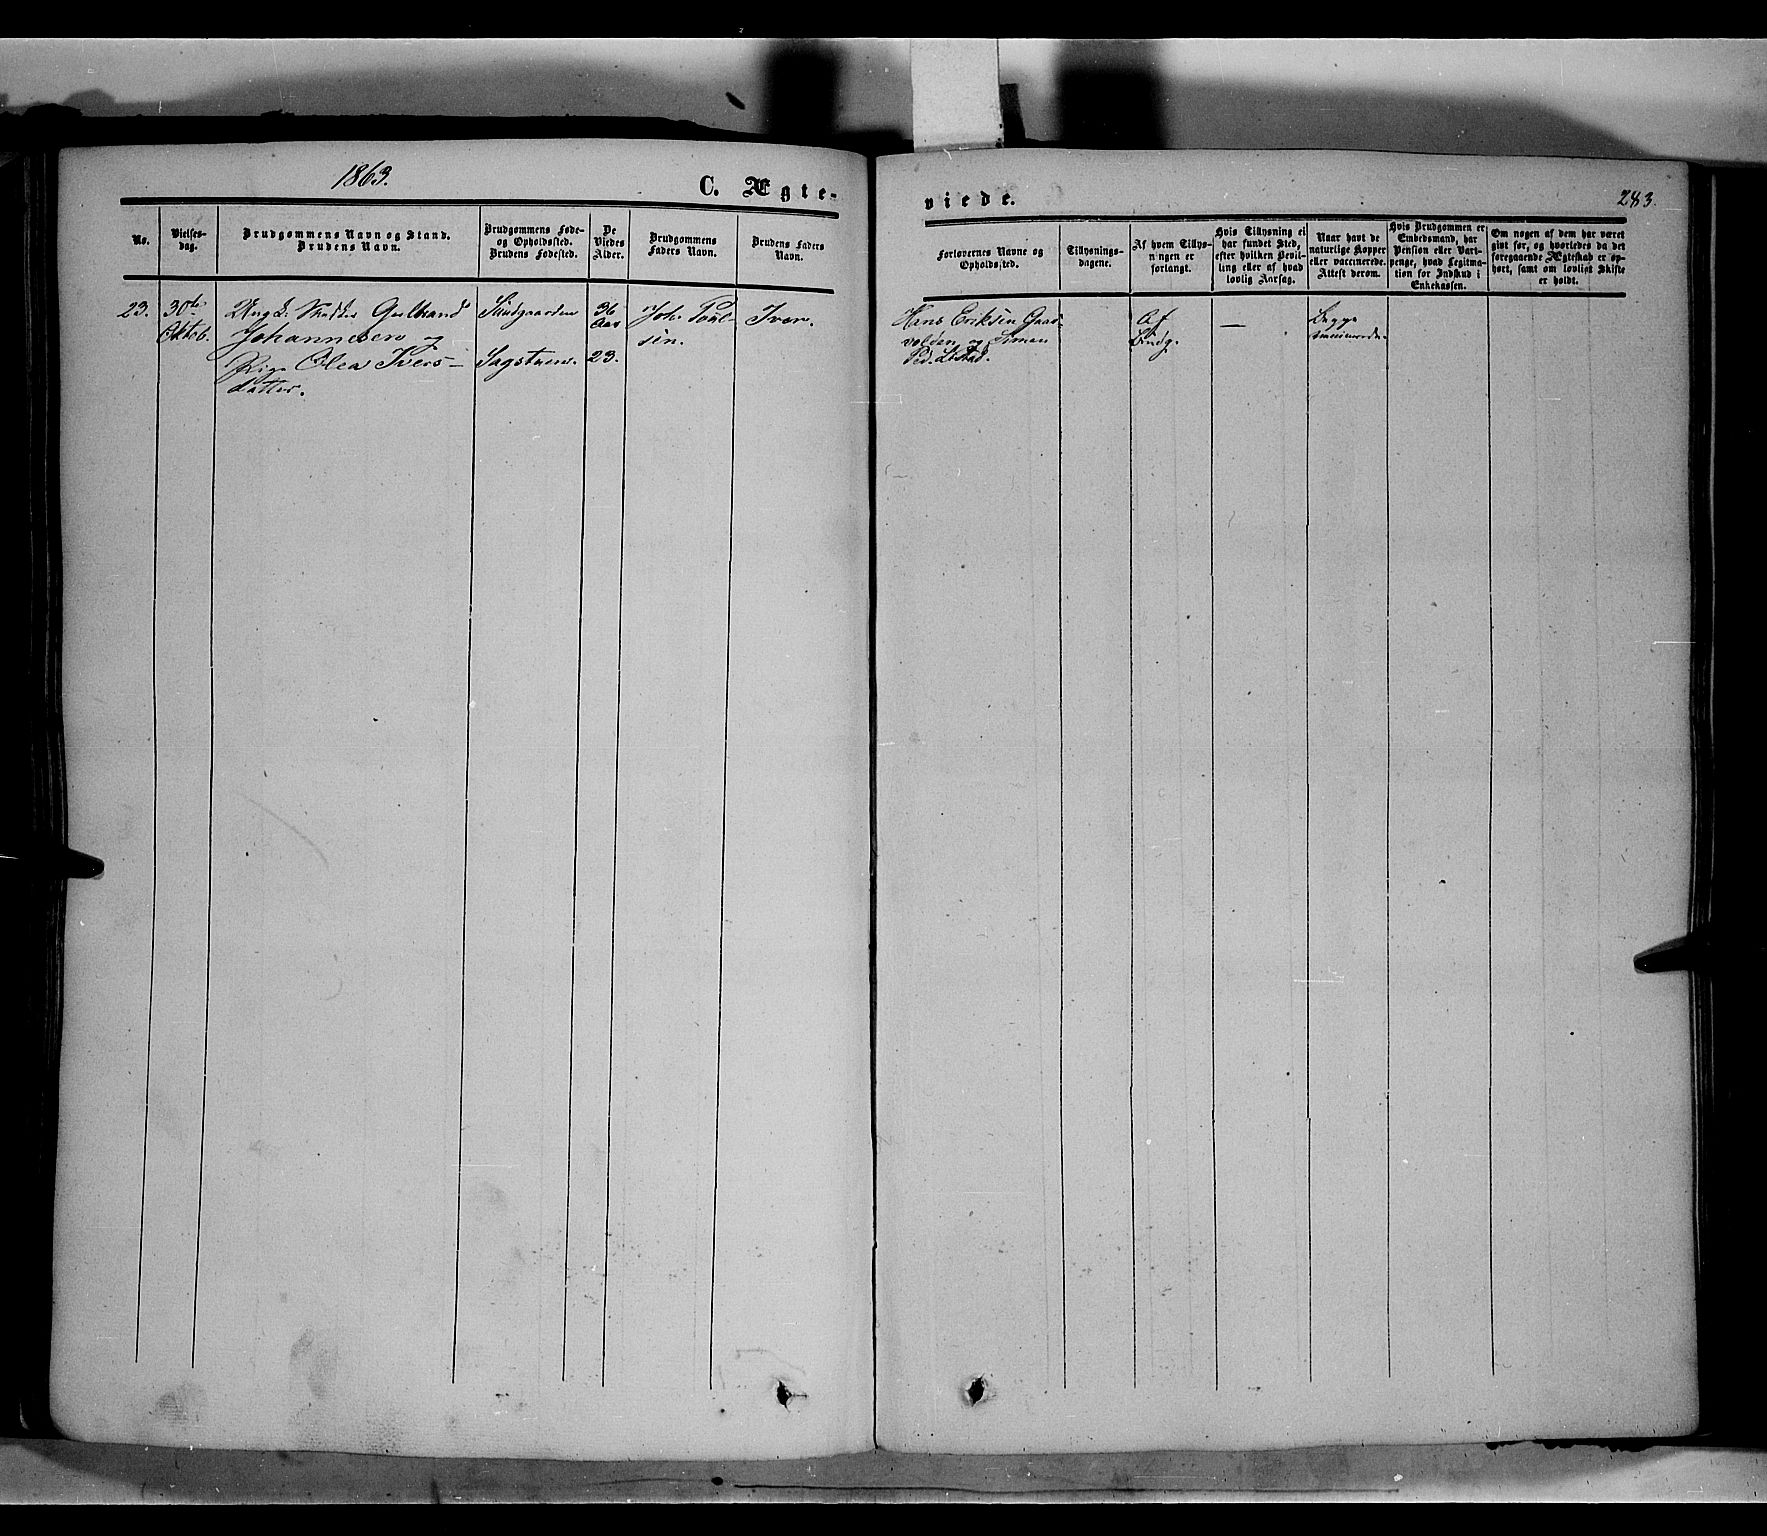 1863.
C. Ægte-
viede.
283.
No.
Vielses-
dag.
Brudgommens Navn og Stand.
Brudens Navn.
Brudgommens Føde-
og Opholdssted.
Brudens Fødested.
De
Viedes
Alder.
Brudgommens
Faders Navn.
Brudens Faders
Navn.
Forlovernes Navne og
Opholdssted.
Tillysnings-
dagene.
Af hvem Tillys-
ningen er
forlangt.
Hvis Tillysning ei
har fundet Sted,
efter hvilken Bevil-
ling eller af hvad
lovlig Aarsag.
Naar havt de
naturlige Kopper
eller vaccinerede.
Attest derom.
Hvis Brudgommen er
Embedsmand, har
Pension eller Vart-
penge, hvad Legitima-
tion for Indskud i
Enkekassen.
Om nogen af dem har været
gift før, og hvorledes da det
foregaaende Ægteskab er op-
hørt, samt om lovligt Skifte
er holdt.
23.
30te
Oktob.
Ung Gulbrand
Johannesen og
Pige Olea Ivers-
datter.
Sundgaarden
Sagstuen.
36
Aar
23.
Joh. Poul-
sen.
Iver.
Hans Eriksen Gaas-
volden og Simen
Ped.
Af
Brudg.
—
Begge